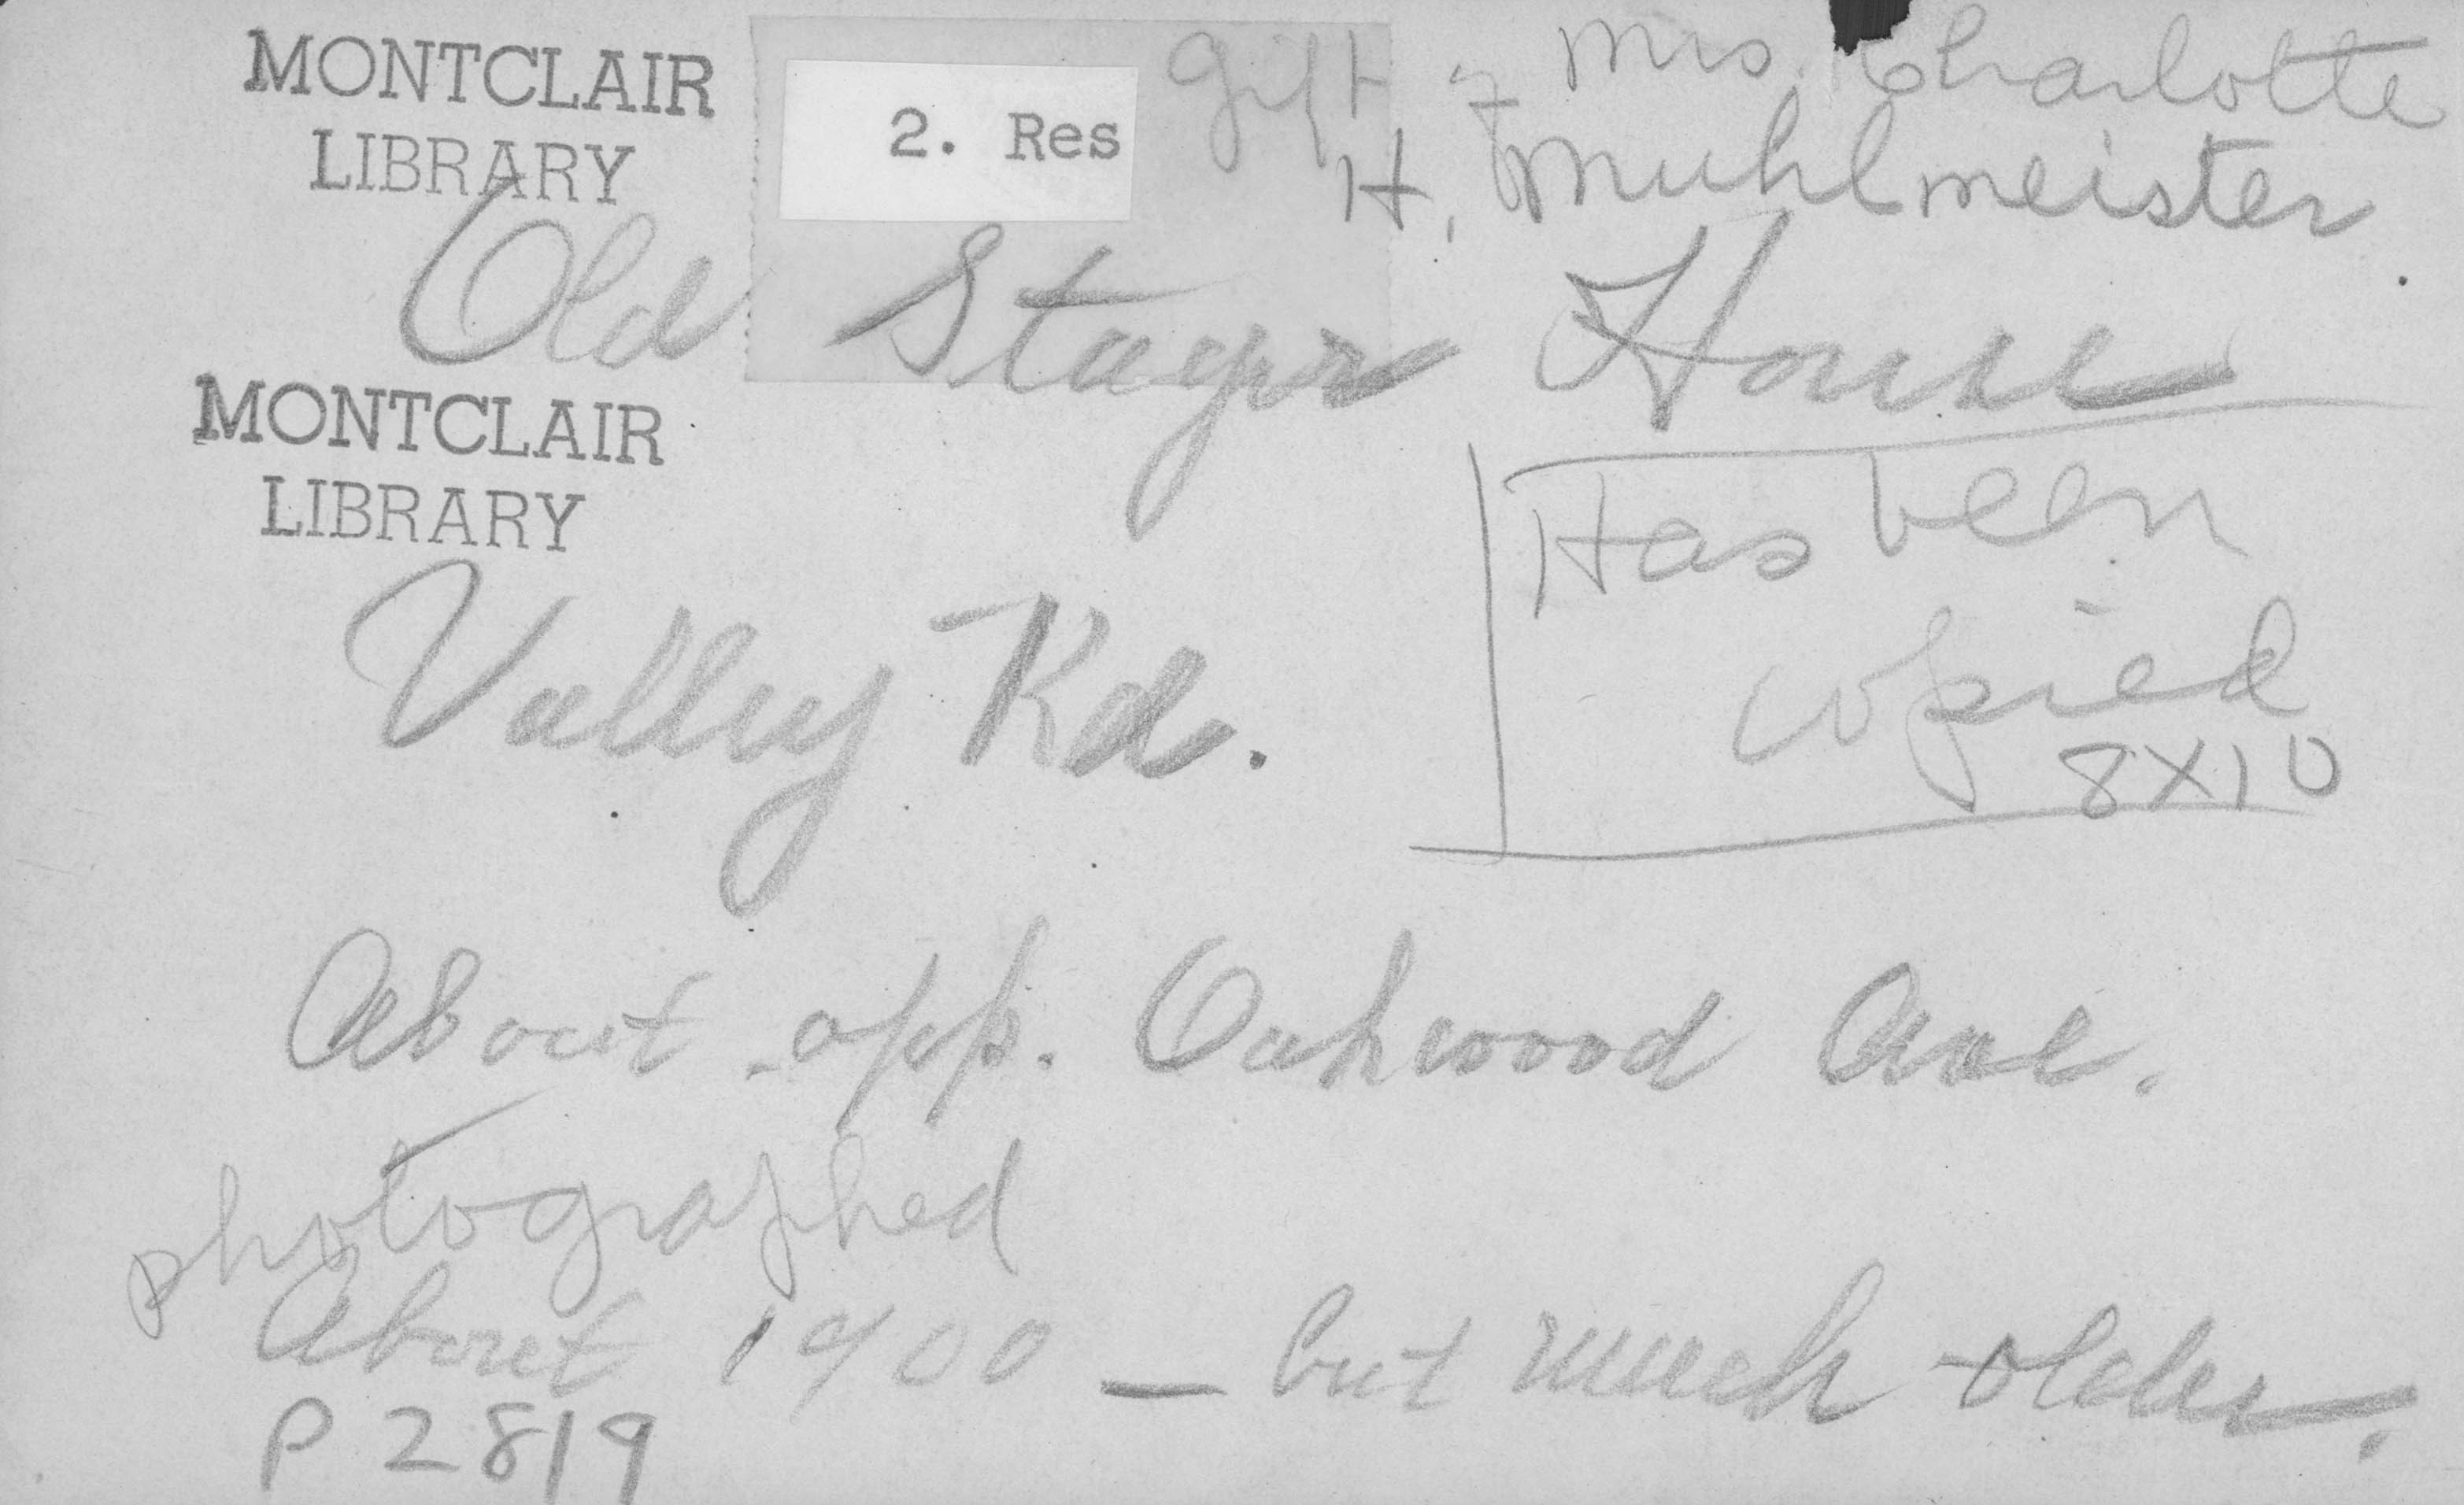 MONTCLAIR
LIBRARY
2. Res
Gift of Mrs. Charlotte
H. Muhlmeister
Old House
MONTCLAIR
LIBRARY
Has been
copied
8X10
Valley Rd.
About opp. Oakwood Ave.
photographed
About 1900 — but much older.
P 2819